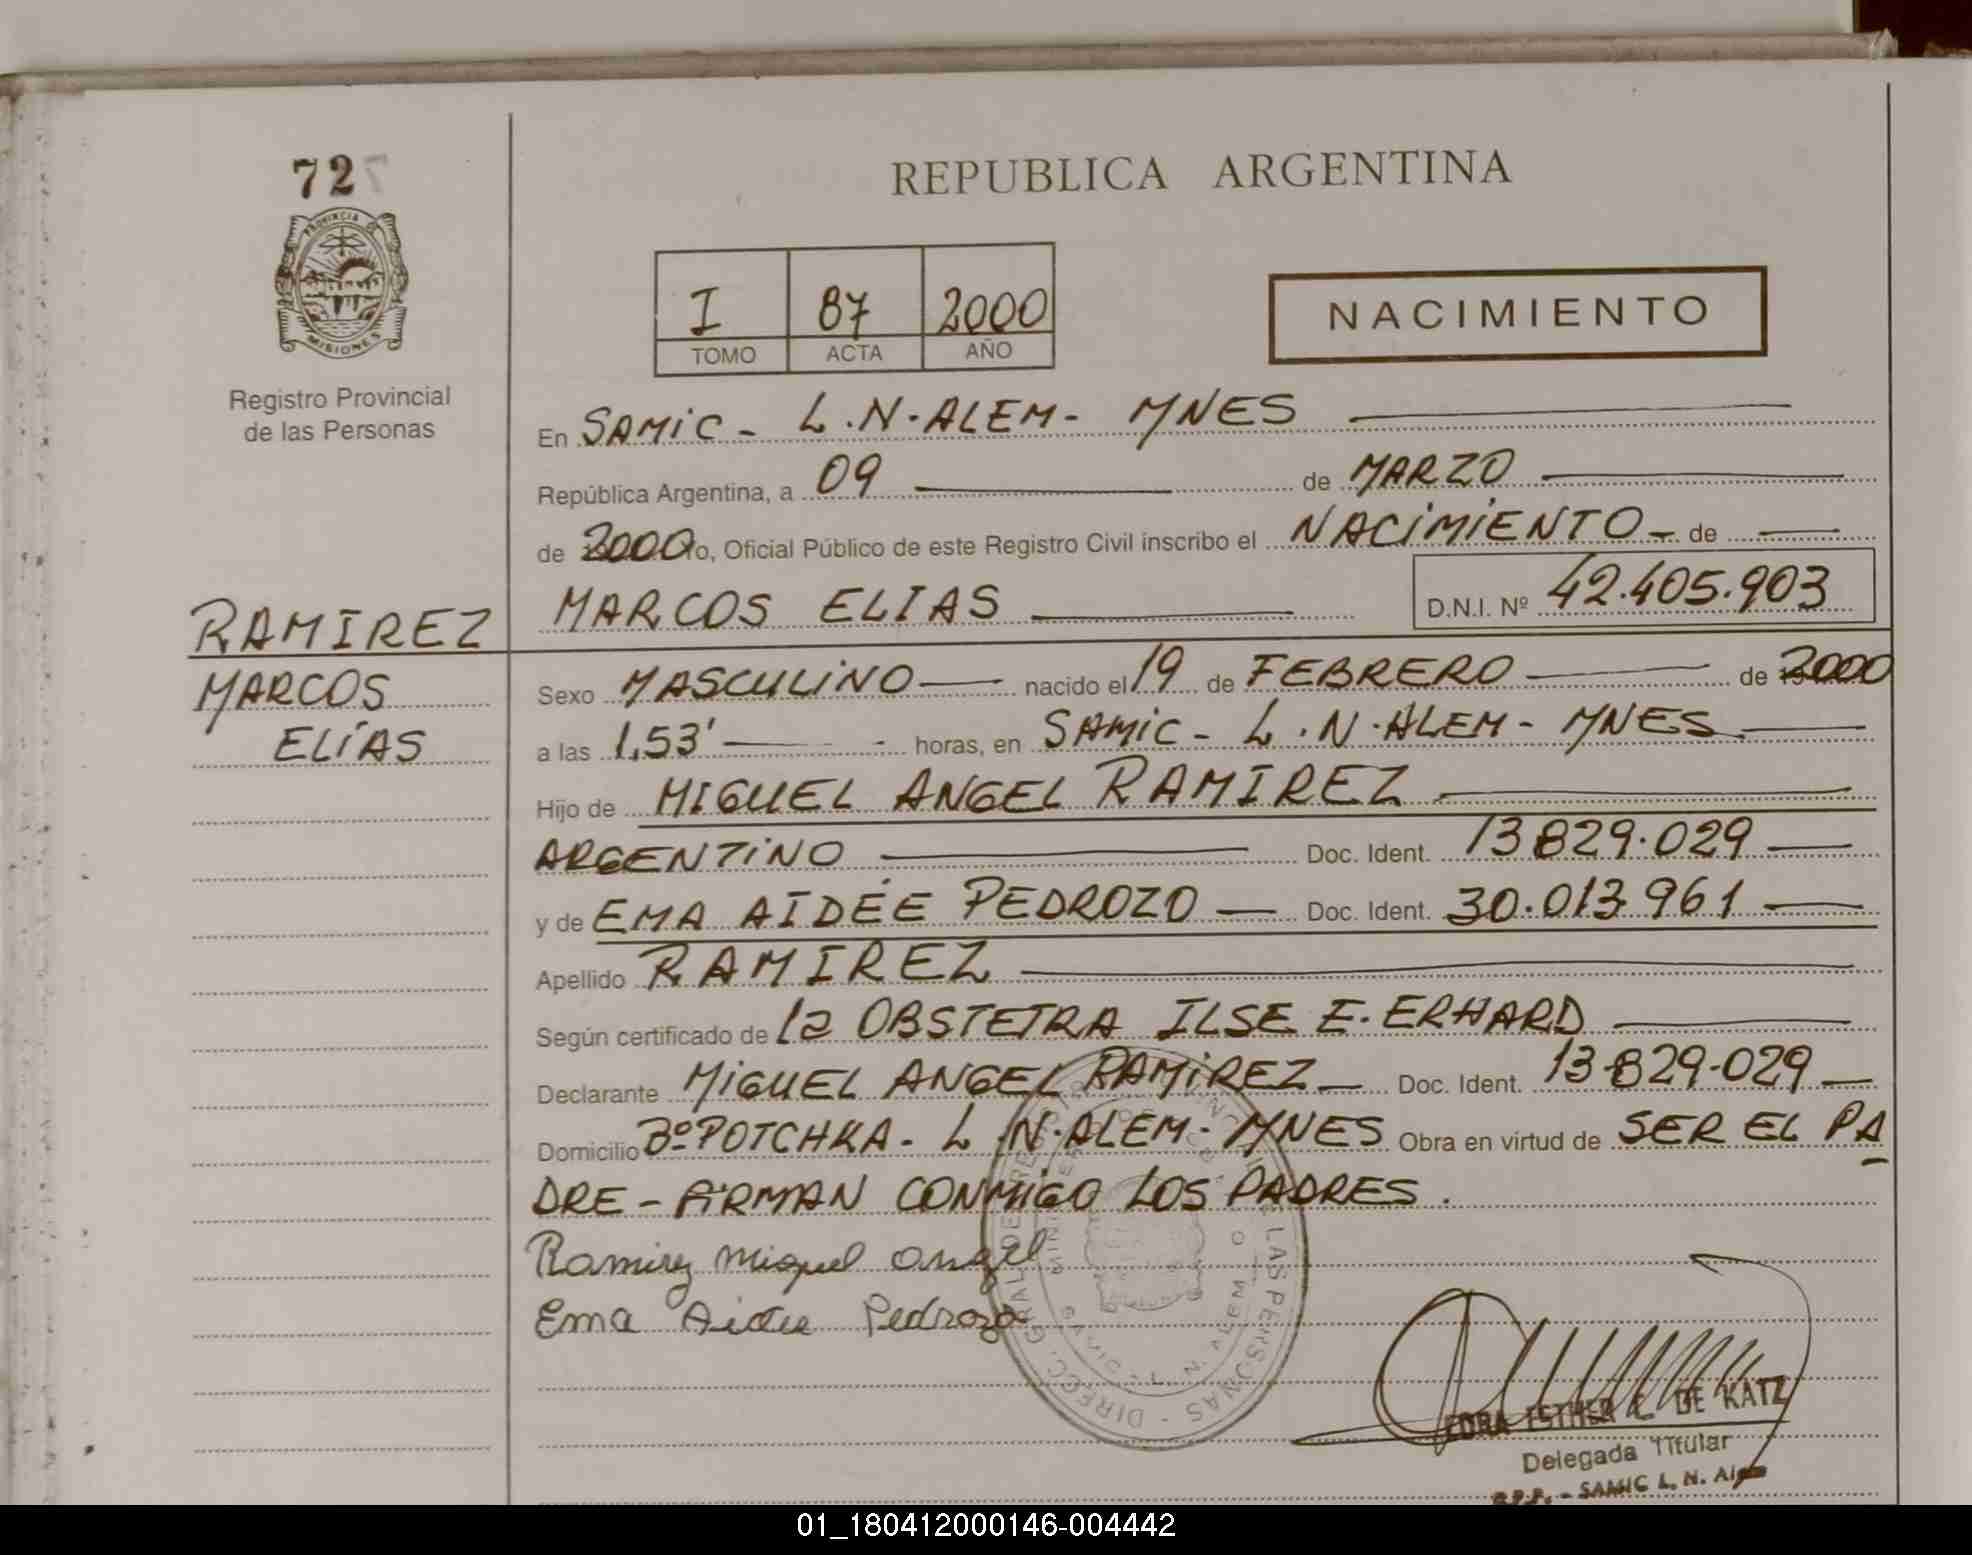 72
PROVINCIA DE
MISIONES
Registro Provincial
de las Personas
RAMIREZ
MARCOS
ELÍAS
REPUBLICA ARGENTINA
I 87 2000
TOMO ACTA AÑO
NACIMIENTO
En SAMIC - L.N.ALEM - MNES
República Argentina, a 09 de MARZO
de 2000 yo, Oficial Público de este Registro Civil inscribo el NACIMIENTO - de
MARCOS ELIAS D.N.I. Nº 42.405.903
Sexo MASCULINO nacido el 19 de FEBRERO de 2000
a las 1,53' horas, en SAMIC - L.N.ALEM - MNES
Hijo de MIGUEL ANGEL RAMIREZ
ARGENTINO Doc. Ident. 13829.029
y de EMA AIDÉE PEDROZO Doc. Ident. 30.013.961
Apellido RAMIREZ
Según certificado de la OBSTETRA ILSE E. ERHARD
Declarante MIGUEL ANGEL RAMIREZ Doc. Ident. 13-829-029
Domicilio Bº POTCHKA - L.N.ALEM - MNES Obra en virtud de SER EL PA
DRE - FIRMAN CONMIGO LOS PADRES.
Ramirez Miguel Angel
Ema Aidee Pedrozo
ESTHER C. DE KATZ
Delegada Titular
R.P.P. - SAMIC L. N. Alem
01_180412000146-004442